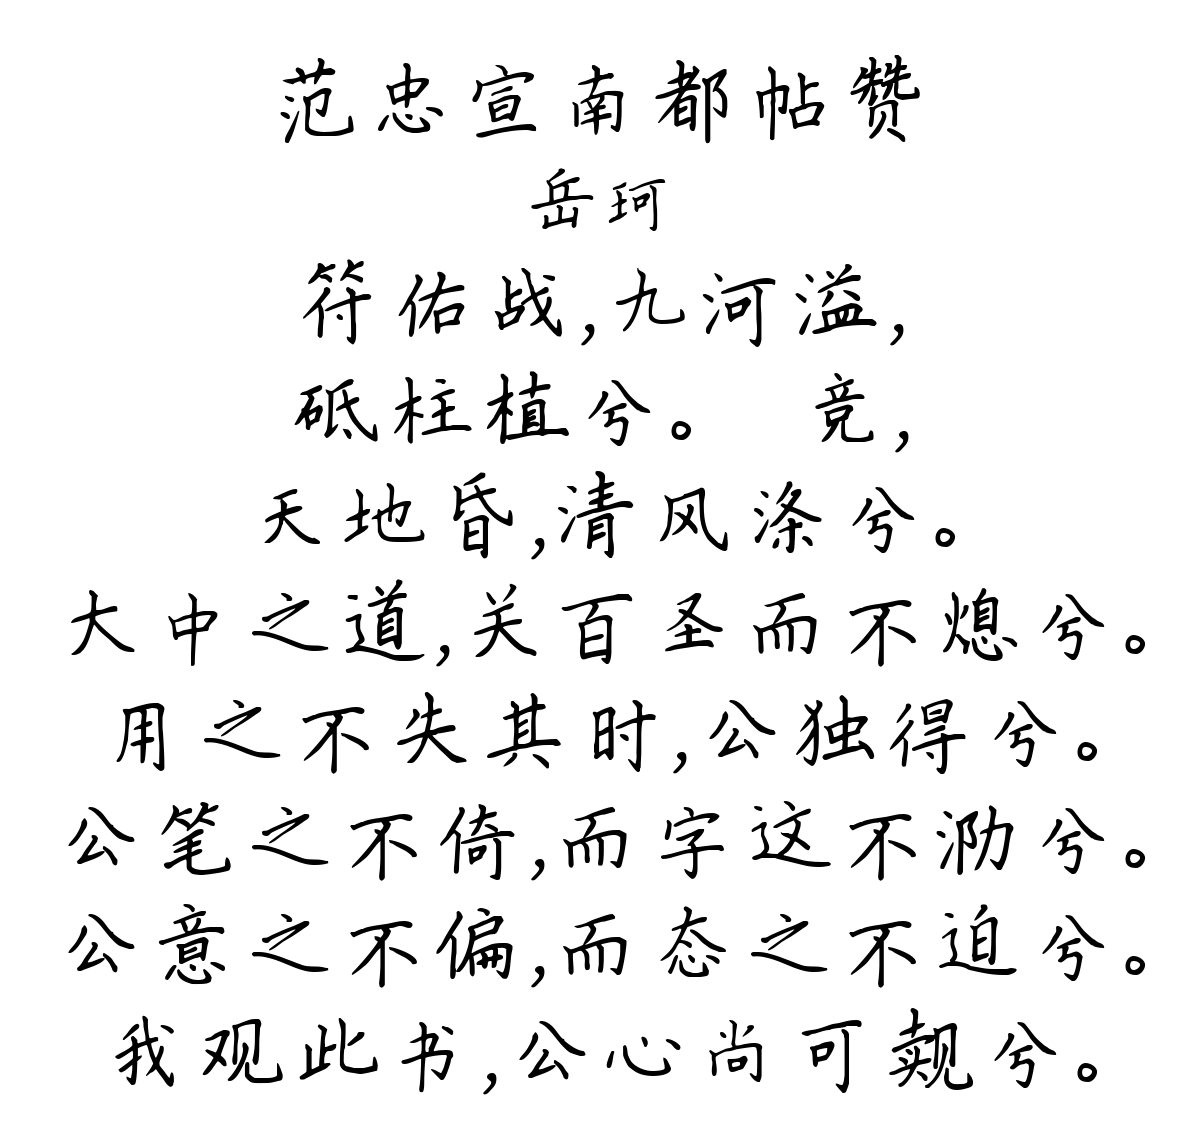 范忠宣南都帖赞
岳珂
符佑战,九河溢,
砥柱植兮。　竞,
天地昏,清风涤兮。
大中之道,关百圣而不熄兮。
用之不失其时,公独得兮。
公笔之不倚,而字这不泐兮。
公意之不偏,而态之不迫兮。
我观此书,公心尚可觌兮。